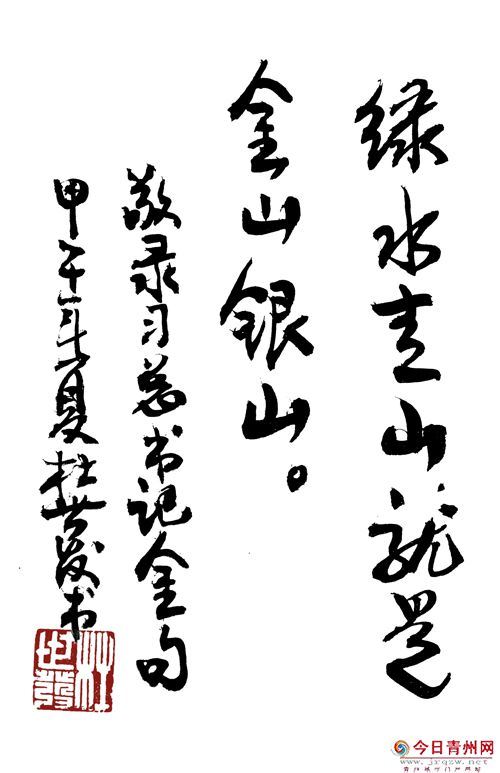 绿水青山就是
金山银山。
敬录习总书记金句
甲午年夏杜世发书
杜世发
今日青州网
www.jrqzw.net
青州城市门户网站